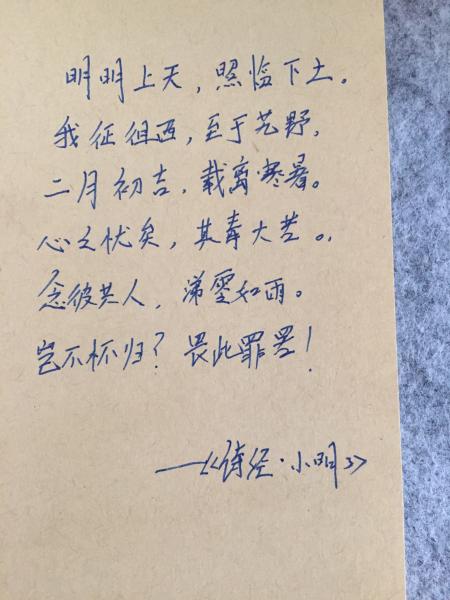 明明上天，照临下土。
我征徂西，至于艽野，
二月初吉，载离寒暑。
心之忧矣，其毒大苦。
念彼共人，涕零如雨。
岂不怀归？畏此罪罟！
——《诗经·小明》